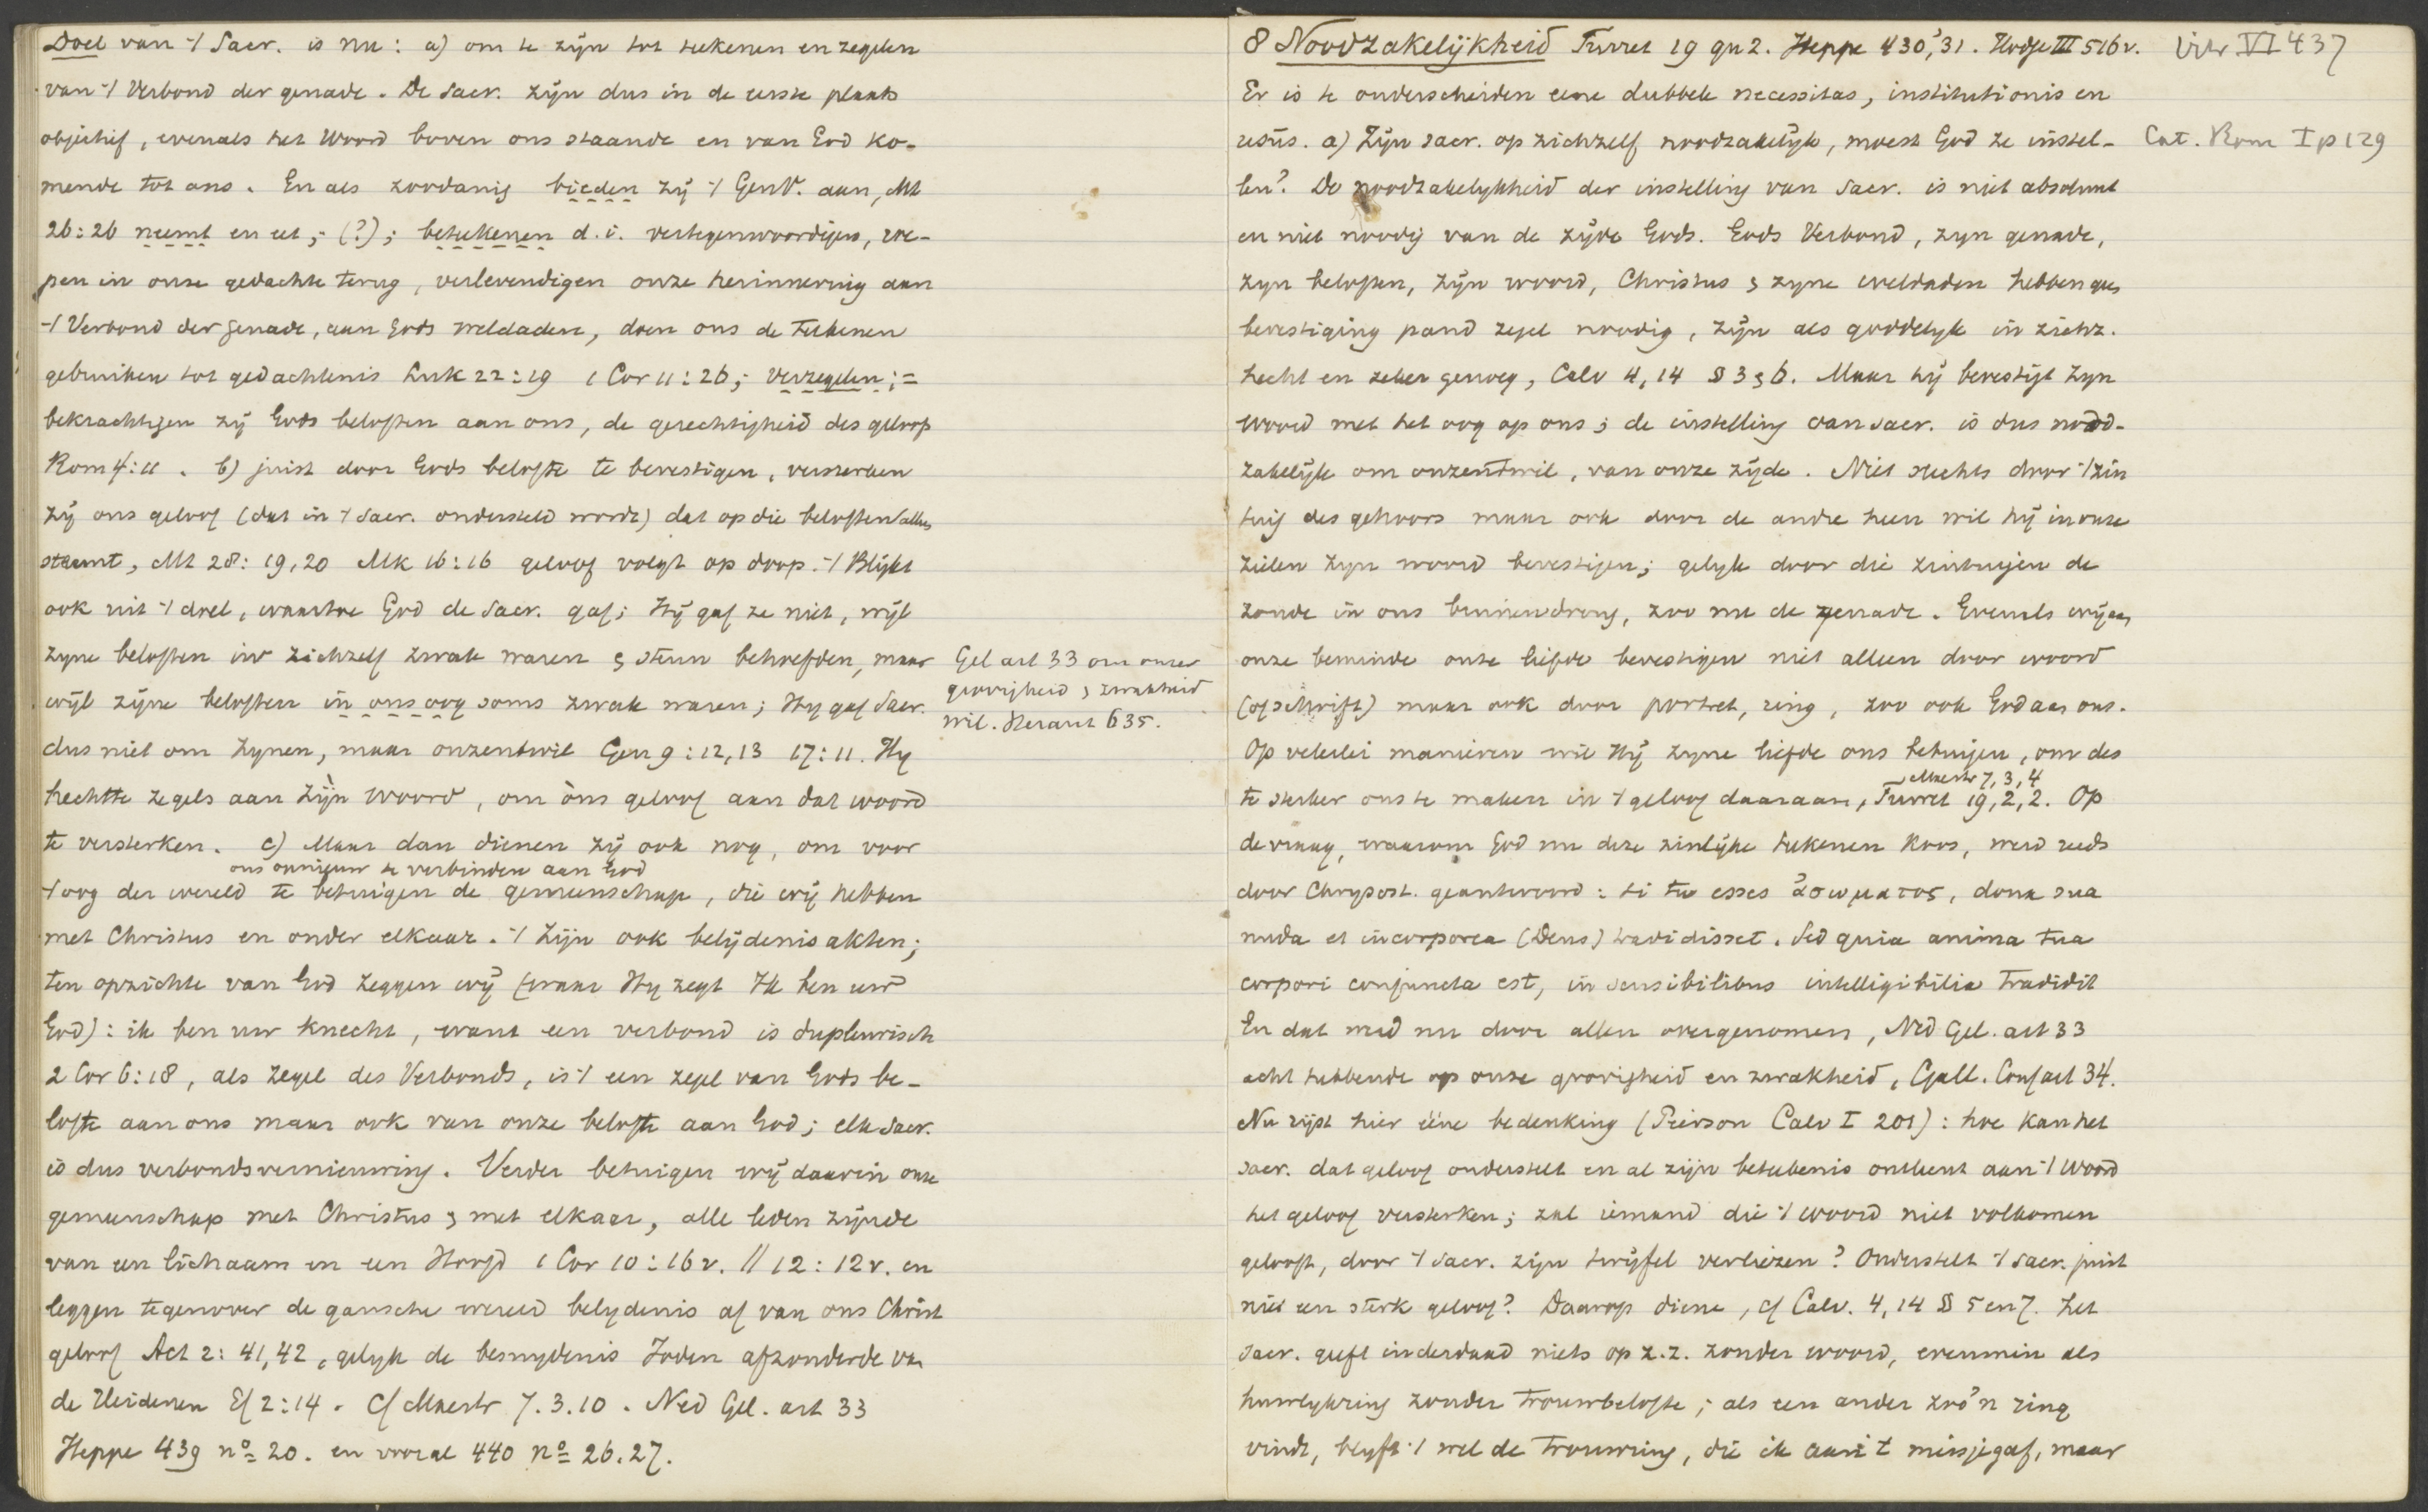 Doel van 't Sacr. is nu: a) om te zijn tot teekenen en zegelen
van 't Verbond der genade. De Sacr. zijn dus in de eerste plaats
objectief, evenals het Woord boven ons staande en van God ko-
mende tot ons. En als zoodanig bieden zij 't GenV. aan, Mt
26:26 neemt en eet; (?); beteekenen d.i. vertegenwoordigen, roe-
pen in onze gedachte terug, verlevendigen onze herinnering aan
't Verbond der genade, aan Gods weldaden, doen ons de teekenen
gebruiken tot gedachtenis Luk 22:19 1 Cor 11:26; verzegelen; =
bekrachtigen zij Gods beloften aan ons, de gerechtigheid des geloofs
Rom 4:11. b) juist door Gods belofte te bevestigen, versterken
zij ons geloof (dat in 't Sacr. ondersteld wordt) dat op die beloften alles
steunt, Mt 28:19,20 Mk 16:16 geloof volgt op doop. 't Blijkt
ook uit 't doel, waartoe God de Sacr. gaf; Hij gaf ze niet, wijl
zyne beloften in zichzelf zwak waren & steun behoefden, maar
wijl zijne beloften in ons oog soms zwak waren; Hy gaf Sacr.
dus niet om Zynen, maar onzentwil Gen 9:12,13 17:11. Hy
hechtte zegels aan Zijn Woord, om òns geloof aan dat woord
te versterken. c) Maar dan dienen zij ook nog, om voor
ons opnieuw te verbinden aan God
't oog der wereld te betuigen de gemeenschap, die wij hebben
met Christus en onder elkaar. 't Zijn ook belijdenisakten;
ten opzichte van God zeggen wij (waar Hy zegt Ik ben uw
God): ik ben uw knecht, want een verbond is dupleurisch
2 Cor 6:18, als zegel des Verbonds, is 't een zegel van Gods be-
lofte aan ons maar ook van onze belofte aan God; elk Sacr.
is dus verbondsvernieuwing. Verder betuigen wij daarin onze
gemeenschap met Christus & met elkaar, alle leden zijnde
van een lichaam en een Hoofd 1 Cor 10:16v. // 12:12v. en
leggen tegenover de gansche wereld belydenis af van ons Christ
geloof Act 2:41,42, gelyk de besnydenis Joden afzonderde van
de Heidenen Ef 2:14. Cf Maestr 7.3.10. Ned Gel. art 33
Heppe 439 no 20. en vooral 440 no 26.27.
Gel art 33 om onzer
grovigheid & zwakheid
wil. Heraut 635.
8 Noodzakelijkheid Turret 19 qu 2. Heppe 430, 31. Hodge III 516v.
Vitr VI 437
Er is te onderscheiden eene dubbele necessitas, institutionis en
usus. a) Zijn sacr. op zichzelf noodzakelijk, moest God ze instel-
Cat. Rom I p 129
len? De noodzakelykheid der instelling van Sacr. is niet absoluut
en niet noodig van de zijde Gods. Gods Verbond, zyn genade,
zyn beloften, zijn woord, Christus & zyne weldaden hebben geen
bevestiging pand zegel noodig, zijn als goddelyk in zichz.
hecht en zeker genoeg, Calv 4,14 § 3 & 6. Maar hij bevestigt zyn
woord met het oog op ons; de instelling van sacr. is dus nood-
zakelijk om onzentwil, van onze zijde. Niet slechts door 't zin
tuig des gehoors maar ook door de andre heen wil hij in onze
zielen zyn woord bevestigen; gelyk door die zintuigen de
zonde in ons binnendrong, zoo nu de genade. Evenals wij aan
onze beminde onze liefde bevestigen niet alleen door woord
(of schrift) maar ook door portret, ring, zoo ook God aan ons.
Op velerlei manieren wil Hij zyne liefde ons betuigen, om des
Maestr 7,3,4
te sterker ons te maken in 't geloof daaraan, Turret 19,2,2. Op
de vraag, waarom God nu deze zinlijke teekenen koos, werd reeds
door Chrysost. geantwoord: si tu esses ἀσωματος, dona sua
nuda et incorporea (Deus) tradidisset. Sed quia anima tua
corpori conjuncta est, in sensibilibus intelligibilia tradidit
En dat werd nu door allen overgenomen, Ned Gel. art 33
acht hebbende op onze grovigheid en zwakheid, Gall. Conf art 34.
Nu rijst hier ééne bedenking (Pierson Calv I 201): hoe kan het
sacr. dat geloof onderstelt en al zijn beteekenis ontleent aan 't Woord
het geloof versterken; zal iemand die 't woord niet volkomen
gelooft, door 't Sacr. zijn twijfel verliezen? Onderstelt 't sacr. juist
niet een sterk geloof? Daarop diene, cf Calv. 4,14 § 5 en 7. Het
Sacr. geeft inderdaad niets op z.z. zonder woord, evenmin als
huwlykring zonder trouwbelofte; als een ander zoo'n ring
vindt, blyft 't wel de trouwring, die ik aan 't meisje gaf, maar